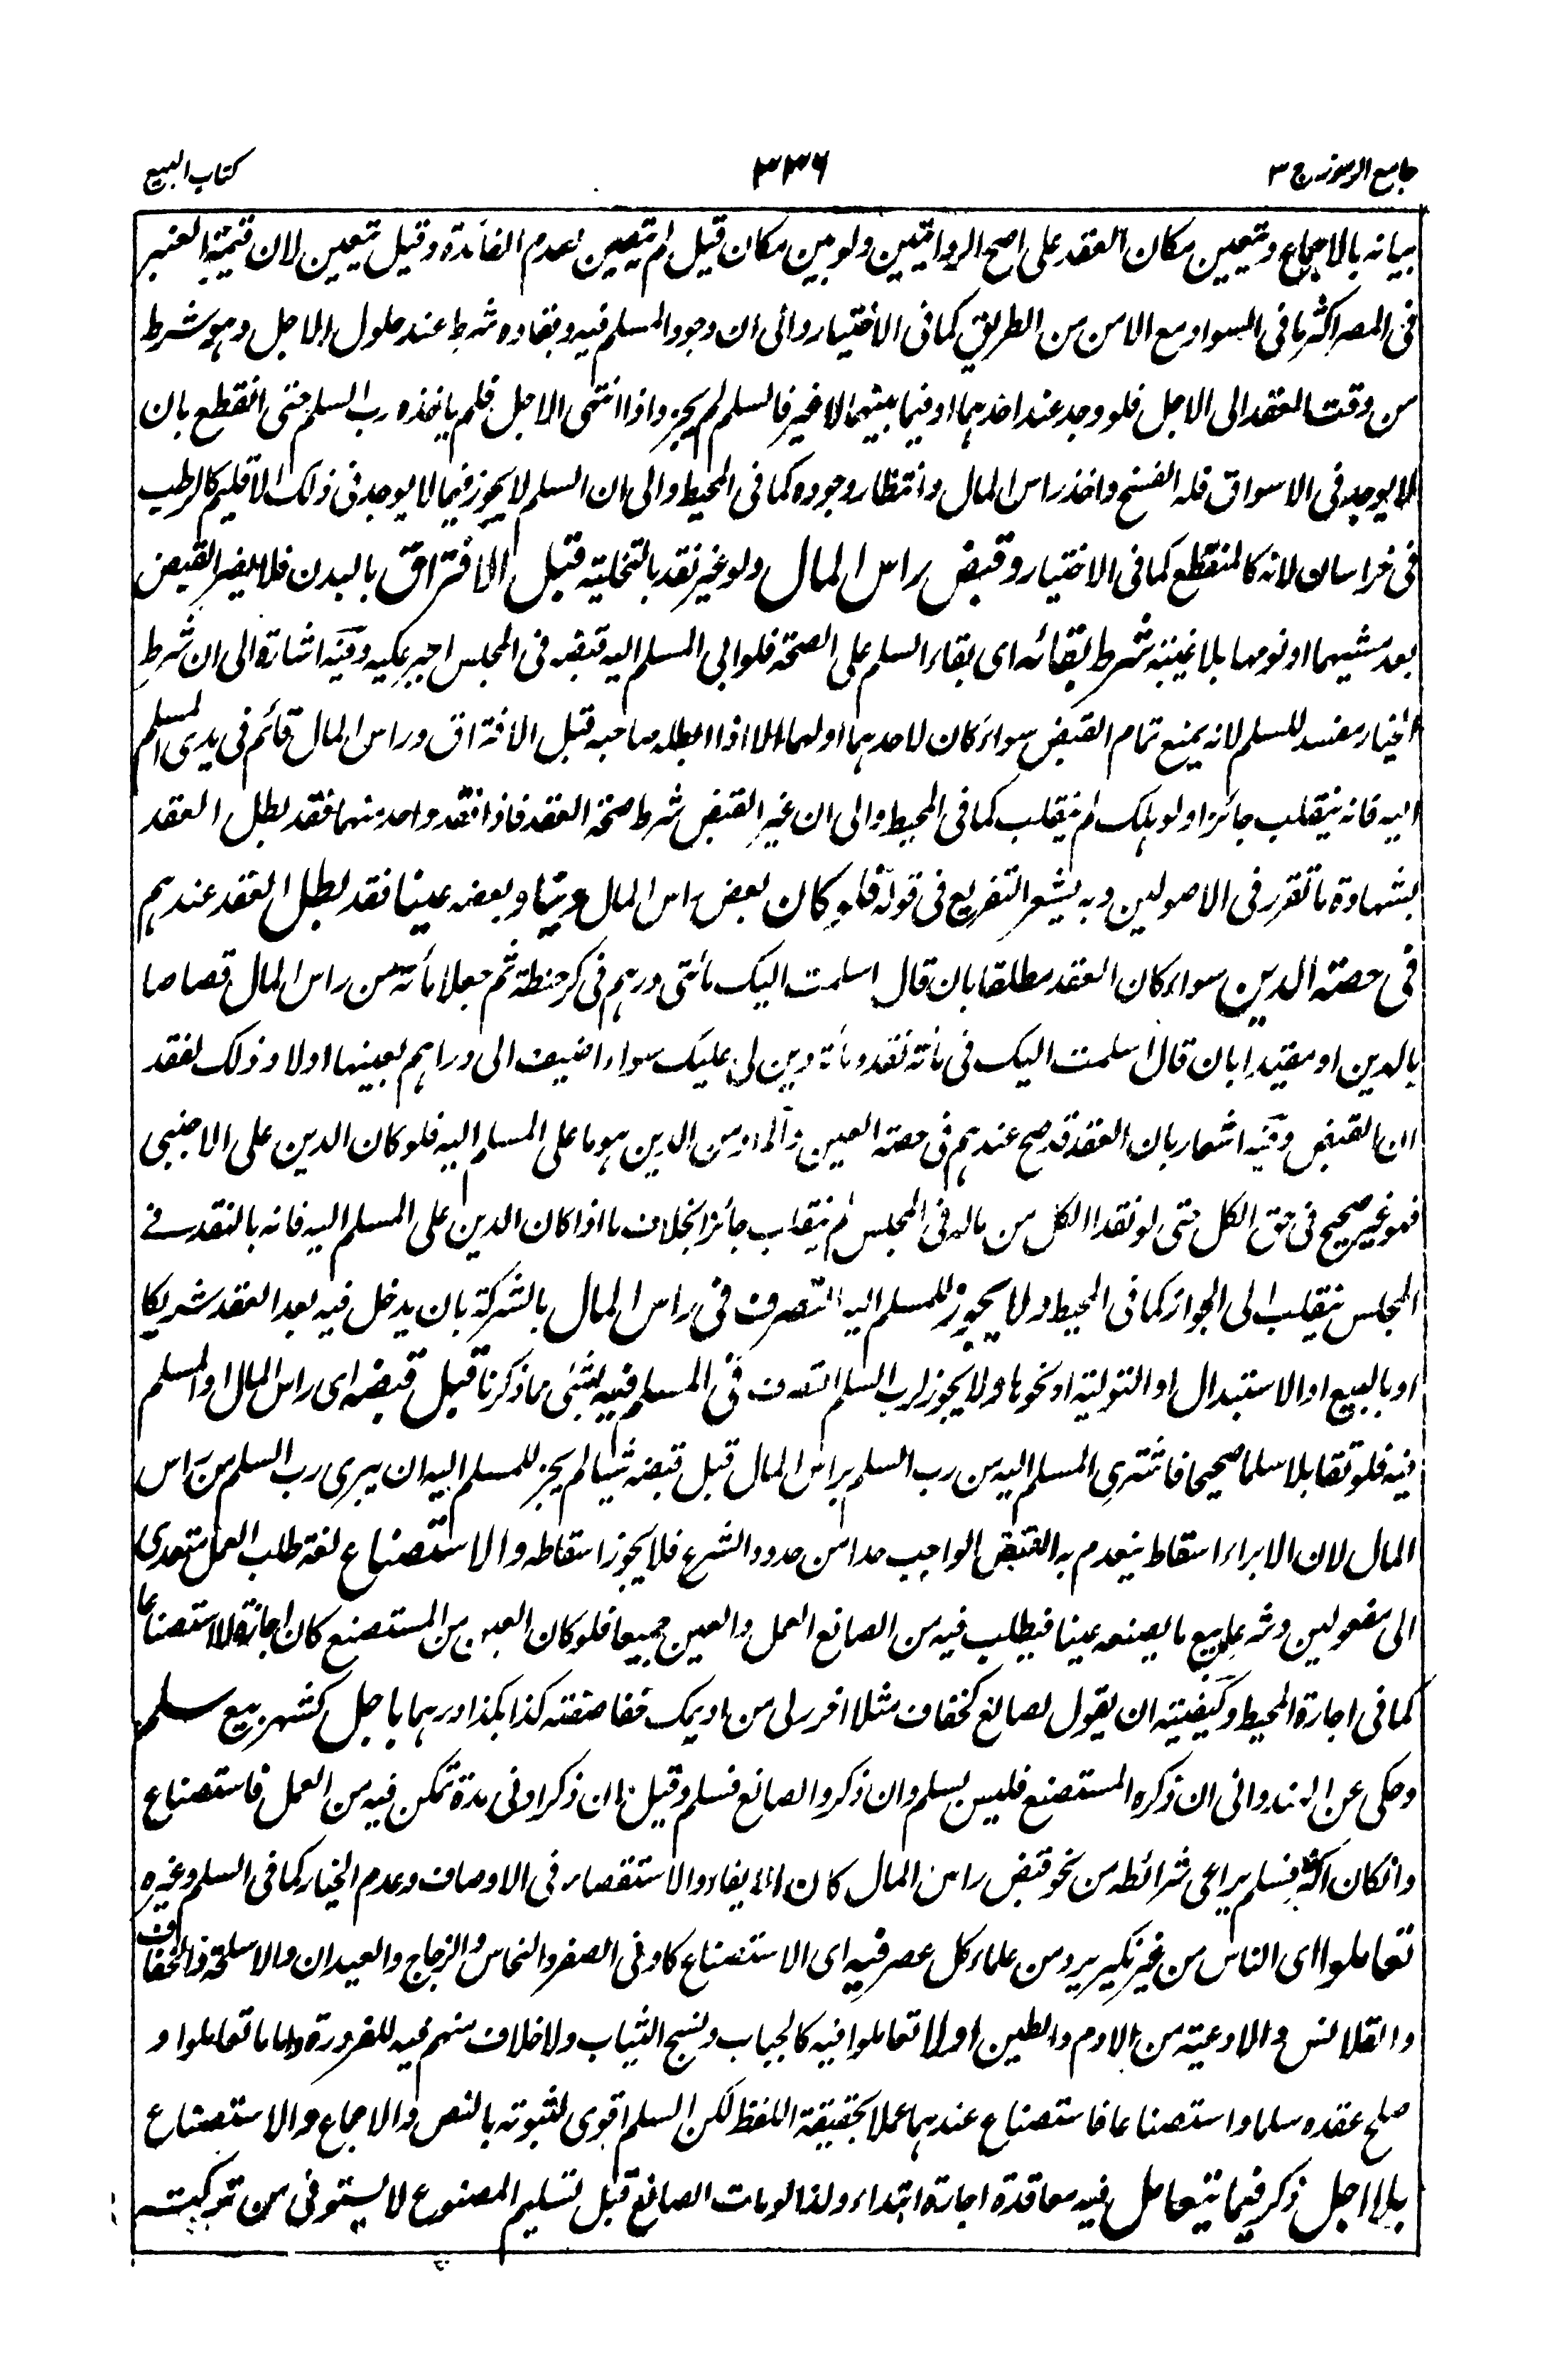 جامع الرموز ج ٣
٣٣٦
كتاب البيع
بيانه بالاجماع ويتعين مكان العقد على اصح الروايتين ولو بين مكان قيل لم يتعين لعدم الفائدة وقيل يتعين لان قيمة العنبر
فى المصر اكثر ما فى السواد مع الامن من الطريق كما فى الاختيار والى ان وجود المسلم فيه وبقاءه شرط عند حلول الاجل وهو شرط
من وقت العقد الى الاجل فلو وجد عند احدهما او فيما بينهما لا غير فالسلم لم يجز واذا انتهى الاجل فلم ياخذه رب السلم حتى انقطع بان
لا يوجد فى الاسواق فله الفسخ واخذ راس المال وانتظار وجوده كما فى المحيط والى ان السلم لا يجوز فيما لا يوجد فى ذلك الاقليم كالرطب
فى خراسان لانه كالمنقطع كما فى الاختيار وقبض راس المال ولو غير نقد بالتخلية قبل الافتراق بالبدن فلا يضر القبض
بعد مشيهما او نومهما بلا غيبة شرط بقائه اى بقاء السلم على الصحة فلو ابى المسلم اليه قبضه فى المجلس اجبر عليه وفيه اشارة الى ان شرط
الخيار مفسد للسلم لانه يمنع تمام القبض سواء كان لاحدهما او لهما الا اذا ابطله صاحبه قبل الافتراق وراس المال قائم فى يدى المسلم
اليه فانه ينقلب جائزا ولو هلك لم ينقلب كما فى المحيط والى ان غير القبض شرط صحة العقد فاذا فقد واحد منهما فقد بطل العقد
بشهادة ما تقرر فى الاصولين وبه يشعر التفريع فى قوله فلو كان بعض راس المال دينا وبعضه عينا فقد بطل العقد عندهم
فى حصة الدين سواء كان العقد مطلقا بان قال اسلمت اليك مأتى درهم فى كر حنطة ثم جعلا مأته من راس المال قصاصا
بالدين او مقيدا بان قال اسلمت اليك فى مأته نقد ومأة دين لى عليك سواء اضيف الى دراهم بعينها اولا وذلك لفقد
ان القبض وفيه اشعار بان العقد قد صح عندهم فى حصة العين والمراد من الدين هو ما على المسلم اليه فلو كان الدين على الاجنبى
فهو غير صحيح فى حق الكل حتى لو نقد الكل من ماله فى المجلس لم ينقلب جائزا بخلاف ما اذا كان الدين على المسلم اليه فانه بالنقد فى
المجلس ينقلب الى الجواز كما فى المحيط ولا يجوز للمسلم اليه التصرف فى راس المال بالشركة بان يدخل فيه بعد العقد شريكا
او بالبيع او الاستبدال او التولية او نحوها ولا يجوز لرب السلم التصرف فى المسلم فيه بشئى مما ذكرنا قبل قبضه اى راس المال او المسلم
فيه فلو تقابلا سلما صحيحا فاشترى المسلم اليه من رب السلم براس المال قبل قبضه شيئا لم يجز للمسلم اليه ان يبرى رب السلم من راس
المال لان الابراء اسقاط ينعدم به القبض الواجب حدا من حدود الشرع فلا يجوز اسقاطه والاستصناع لغة طلب العمل متعدى
الى مفعولين وشرعا بيع ما يصنعه عينا فيطلب فيه من الصانع العمل والعين جميعا فلو كان العين من المستصنع كان اجازة لا استصناعا
كما فى اجارة المحيط وكيفيته ان يقول لصانع كخفاف مثلا اخرز لى من اديمك خفا صفته كذا بكذا درهما باجل كشهر بيع سلم
وحكى عن الهندوانى ان ذكره المستصنع فليس بسلم وان ذكر والصانع فسلم وقيل ان ذكر ادنى مدة تمكن فيه من العمل فاستصناع
وانكان اكثر فسلم يراعى شرائطه من نحو قبض راس المال كان الايفاء والاستقصاء فى الاوصاف وعدم الخيار كما فى السلم وغيره
تعاملوا اى الناس من غير نكير يرد من علماء كل عصر فيه اى الاستصناع كاو فى الصفر والنحاس والزجاج والعيدان والاسلحة والخفاف
والقلانس والاوعية من الادم والطين او لا تعاملوا فيه كالجباب ونسج الثياب ولا خلاف منهم فيه للضرورة واما ما تعاملوا و
صلح عقده سلما واستصناعا فاستصناع عندهما عملا بحقيقة اللفظ لكن السلم اقوى لثبوته بالنص والاجماع والاستصناع
بلا اجل ذكر فيما يتعامل فيه معاقدة اجارة ابتداء ولذا لو مات الصانع قبل تسليم المصنوع لا يستوفى من تركبته